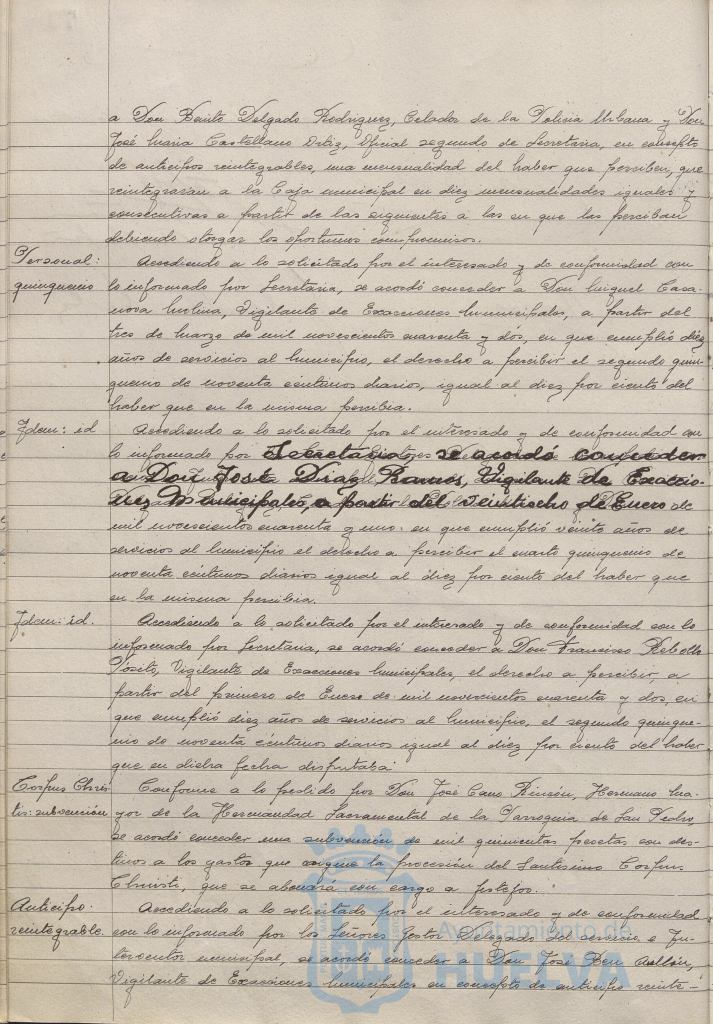 a Don Benito Delgado Rodriguez, Celador de la Policia Urbana y Don
José Maria Castellano Ortiz, Oficial segundo de Secretaria, en concepto
de anticipos reintegrables, una mensualidad del haber que perciben, que
reintegraran a la Caja municipal en diez mensualidades iguales y
consecutivas a partir de las siguientes a las en que las perciban
debiendo otorgar los oportunos compromisos.
Personal:
quinquenio
Accediendo a lo solicitado por el interesado y de conformidad con
lo informado por Secretaria, se acordó conceder a Don Miguel Casa-
nova Molina, Vigilante de Exacciones Municipales, a partir del
tres de Marzo de mil novecientos cuarenta y dos, en que cumplió diez
años de servicios al Municipio, el derecho a percibir el segundo quin-
quenio de noventa céntimos diarios, igual al diez por ciento del
haber que en la misma percibia.
Idem: id
Accediendo a lo solicitado por el interesado y de conformidad con
lo informado por Secretaria se acordó conceder
a Don José Diaz Ramos, Vigilante de Exaccio-
nes Municipales, a partir del veintiocho de Enero de
mil novecientos cuarenta y uno: en que cumplió veinte años de
servicios al municipio el derecho a percibir el cuarto quinquenio de
noventa céntimos diarios igual al diez por ciento del haber que
en la misma percibia.
Idem: id.
Accediendo a lo solicitado por el interesado y de conformidad con lo
informado por Secretaria, se acordó conceder a Don Francisco Rebollo
Pósito, Vigilante de Exacciones Municipales, el derecho a percibir, a
partir del primero de Enero de mil novecientos cuarenta y dos, en
que cumplió diez años de servicios al Municipio, el segundo quinque-
nio de noventa céntimos diarios igual al diez por ciento del haber
que en dicha fecha disfrutaba
Corpus Chris-
tis: subvención
Conforme a lo pedido por Don José Cano Rincón, Hermano Ma-
yor de la Hermandad Sacramental de la Parroquia de San Pedro,
se acordó conceder una subvención de mil quinientas pesetas con des-
tino a los gastos que origine la procesión del Santisimo Corpus
Christi, que se abonará con cargo a festejos.
Anticipo
reintegrable.
Accediendo a lo solicitado por el interesado y de conformidad
con lo informado por los Señores Gestor Delegado del servicio e In-
terventor municipal, se acordó conceder a Don José Ben
Vigilante de Exacciones Municipales en concepto de anticipo reinte-
Ayuntamiento de
HUELVA